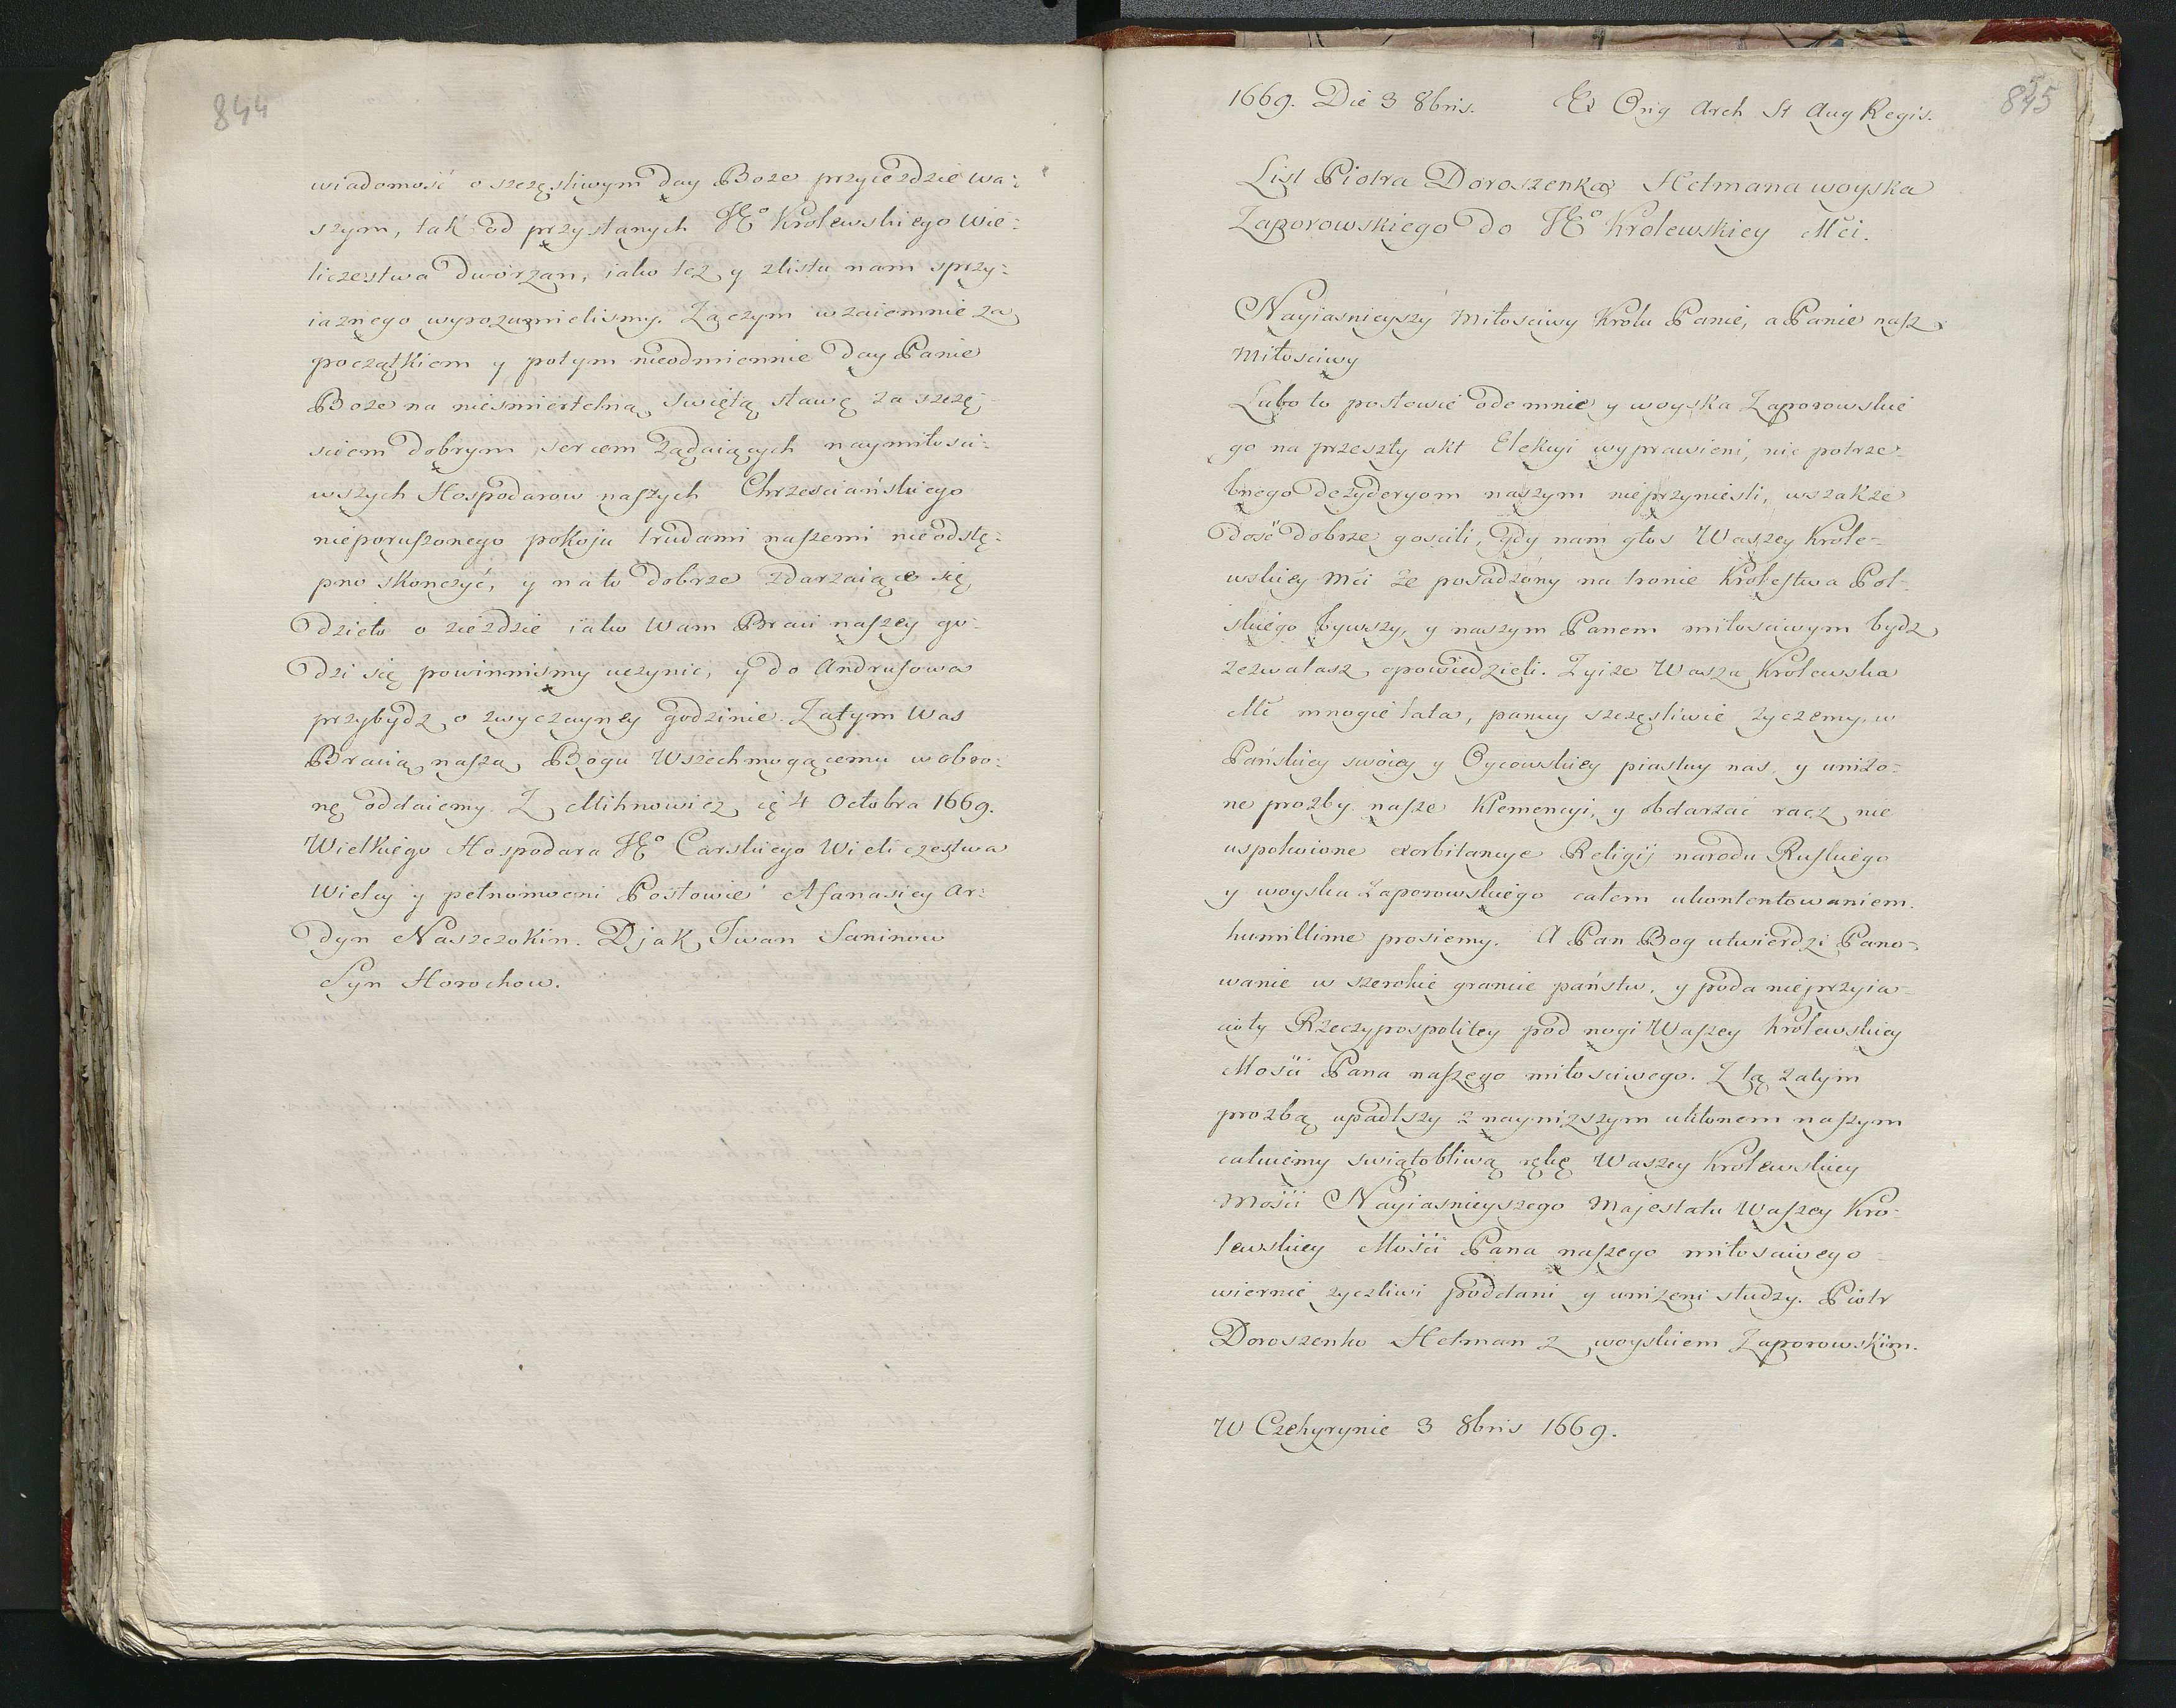 844
wiadomość o szczęsliwym day Boze przyiezdzie wa:
szym, tak od przysłanych JEº Krolewskiego Wie:
liczestwa Dworzan, iako tez y z listu nam sprzy:
iaznego wyrozumielismy. Zaczym wzaiemnie za
początkiem y potym nieodmiennie Day Panie
Boze na niesmiertelną swiętą sławę za szczę:
sciem dobrym sercem Ządaiących naymiłosci:
wszych Hospodarow naszych Chrzesciańskiego
nieporuszonego pokoju trudami naszemi nieodstę:
pno skonczyć, y na to dobrze zdarzaiące się
Dzieło o zieździe iako Wam Braci naszey go:
dzi się powinnismy uczynic, y do Andrusowa
przybydz o zwyczayney godzinie. Zatym Was
Bracią naszą Bogu Wszechmogącemu w obro:
nę oddaiemy. Z Mihnowicz ię 4 Octobra 1669.
Wielkiego Hospodara JEº Carskiego Wieliczestwa
Wielcy y pełnomocni Posłowie Afanasiey Ar:
dyn Naszczokin. Djak Iwan Saninow
Syn Horochow.
1669. Die 3 8bris. Ex Orig Arch St Aug Regis.
845
List Piotra Doroszenka Hetmana woyska
Zaporowskiego do JEº Krolewskiey Mci.
Nayiasnieyszy Miłosciwy Krolu Panie, a Panie nasz
Miłosciwy
Lubo to posłowie odemnie y woyska Zaporowskie
go na przeszły akt Elekcyi wyprawieni, nic potrze-
bnego dezyderyom naszym nieprzyniesli, wszakze
dość dobrze goscili, gdy nam głos Waszey Krole-
wskiey Mci ze posadzony na tronie Krolestwa Pol-
skiego bywszy, y naszym Panem miłosciwym bydz
zezwalasz opowiedzieli. Zyize Wasza Krolewska
Mć mnogie lata, panuy szczęsliwie zyczemy, w
Pańskiey swoiey y Oycowskiey piastuy nas, y unizo-
ne prozby nasze Klemencyi, y obdarzać racz nie
uspokoione exorbitancye Religij narodu Ruskiego
y woyska Zaporowskiego całem ukontentowaniem.
humillime prosiemy. A Pan Bog utwierdzi Pano-
wanie w szerokie granice państw, y poda nieprzyia-
cioły Rzeczypospolitey pod nogi Waszey Krolewskiey
Mości Pana naszego miłosciwego. Z tą zatym
prozbą upadłszy z nayniższym ukłonem naszym
całuiemy swiątobliwą rękę Waszey Krolewskiey
Mości Nayiasnieyszego Majestatu Waszey Kro-
lewskiey Mości Pana naszego miłosciwego
wiernie zyczliwi poddani y unizeni słudzy. Piotr
Doroszenko Hetman z woyskiem Zaporowskim.
W Czehyrynie 3 8bris 1669.